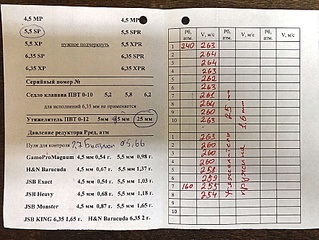 4,5 MP 4,5 MPR
5,5 SP 5,5 SPR
5,5 XP нужное подчеркнуть 5,5 XPR
6,35 SP 6,35 SPR
6,35 XP 6,35 XPR
Серийный номер №
Седло клапана ПВТ 0-10 5,2 5,8 6,2
для исполнений 6,35 мм не применяется
Утяжелитель ПВТ 0-12 5мм 15 мм 25 мм
Давление редуктора Pред, атм
Пуля для контроля
GamoProMagnum 4,5 мм 0,54 г. 5,5 мм 0,98 г.
H&N Baracuda 4,5 мм 0,67 г. 5,5 мм 1,37 г.
JSB Exact 4,5 мм 0,54 г. 5,5 мм 1,03 г.
JSB Heavy 4,5 мм 0,68 г. 5,5 мм 1,18 г.
JSB Monster 4,5 мм 0,87 г. 5,5 мм 1,65 г.
JSB KING 6,35 1,65 г. H&N Barucuda 6,35 2 г.
Рб, атм. V, м/с Рб, атм. V, м/с
1 240 263
2 264
3 264
4 263
5 263
6 262
7 261
8 264
9 260
10 263
1 263
2 260
3 258
4 260
5 258
6 259
7 160 255
8 254
9
10